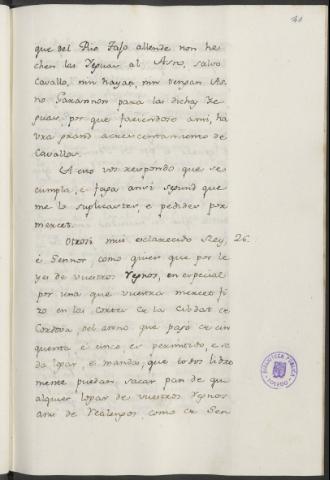 41
que del Rio Tajo allende non he
chen las Yeguas al Asno, salvo
Cavallo, nin hayan, nin tengan As
no Garannon para las dichas Ye
guas, por que faciendose ansi, ha
vra grand acrescentamiento de
Cavallos.
A esto vos respondo que se
cumpla, e faga ansi segund que
me lo suplicastes, e pedistes por
merced.
Otrosi mui esclarecido Rey, 26.
é Sennor, como quier que por le
yes de vuestros Regnos, en especial
por una que vuestra merced fi
zo en las Cortes de la Cibdad de
Cordova del anno que pasó de cin
quenta é cinco es permitido, e se
da lugar, é manda, que todos libre
mente puedan sacar pan de qu
alquier logar de vuestros Regnos
ansi de Realengos, como de Sen
BIBLIOTECA PUBLICA
TOLEDO